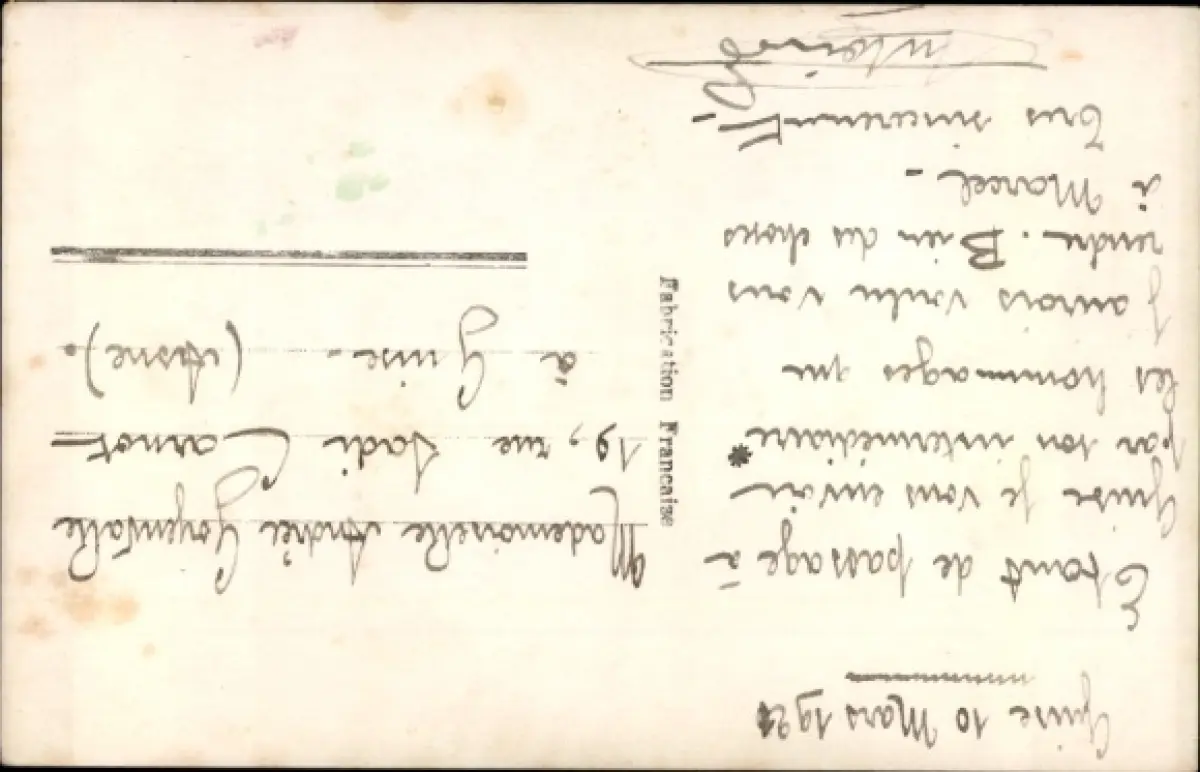 Guise 10 Mars 1921
Etant de passage à
Guise je vous envoie
par son intermédiaire
les hommages que
j'aurois voulu vous
rendre. Bien des choses
à Marcel -
Très sincèrement
Fabrication Française
Mademoiselle Andrée
19, rue Sadi Carnot
à Guise - (Aisne).